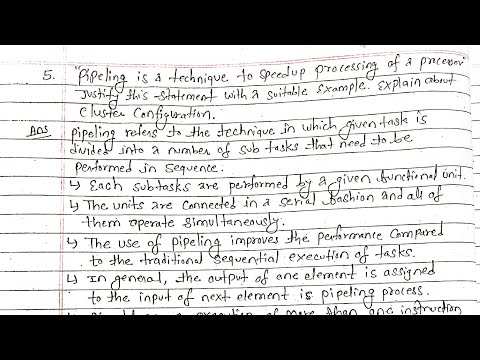 5. "Pipeling is a technique to speedup processing of a processor"
Justify this statement with a suitable example. Explain about
Cluster Configuration.
Ans pipeling refers to the technique in which given task is
divided into a number of sub tasks that need to be
performed in sequence.
↳ Each subtasks are performed by a given functional unit.
↳ The units are connected in a serial fashion and all of
them operate simultaneously.
↳ The use of pipeling improves the performance compared
to the traditional sequential execution of tasks.
↳ In general, the output of one element is assigned
to the input of next element is pipeling process.
execution of more than one instruction